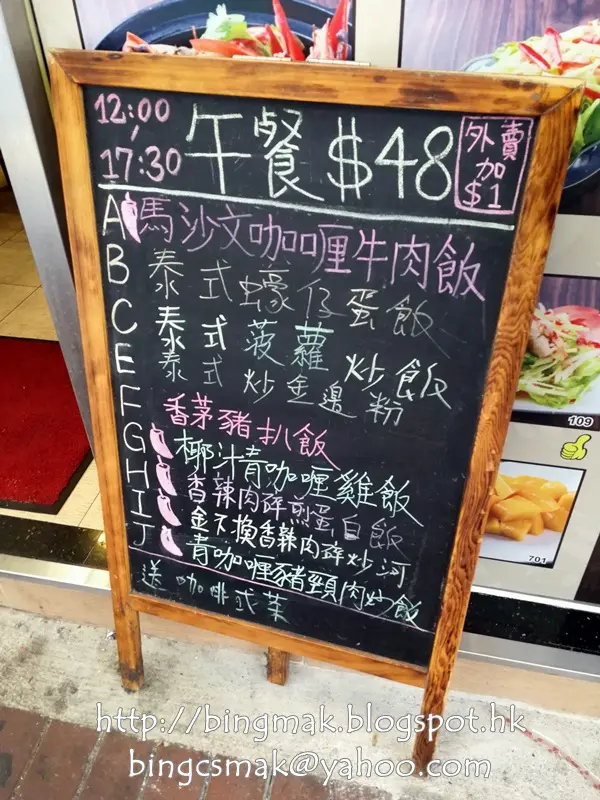 12:00
,
17:30
午餐 $48
外賣
加
$1
A 馬沙文咖喱牛肉飯
B 泰式蠔仔蛋飯
C 泰式菠蘿炒飯
E 泰式炒金邊粉
F 香茅豬扒飯
G 椰汁青咖喱雞飯
H 香辣肉碎煎蛋白飯
I 金不換香辣肉碎炒河
J 青咖喱豬頸肉炒飯
送咖啡或茶
109
701
http://bingmak.blogspot.hk
bingcsmak@yahoo.com